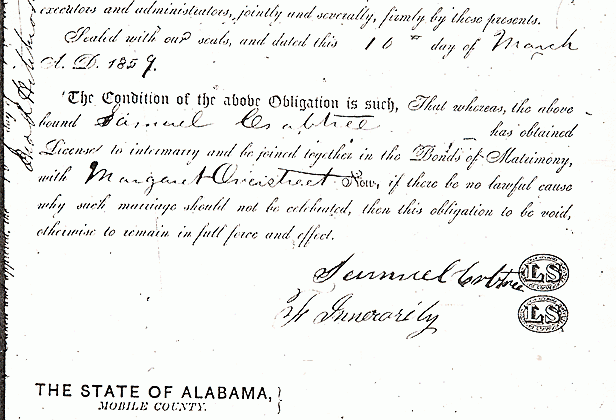 executors and administrators, jointly and severally, firmly by these presents.
Sealed with our seals, and dated this 10th day of March
A. D. 1859.
The Condition of the above Obligation is such, That whereas, the above
bound Samuel Crabtree has obtained
License to intermarry and be joined together in the Bonds of Matrimony,
with Margaret Overstreet Now, if there be no lawful cause
why such marriage should not be celebrated, then this obligation to be void,
otherwise to remain in full force and effect.
Samuel Crbtree LS
Innerarity LS
THE STATE OF ALABAMA,
MOBILE COUNTY.